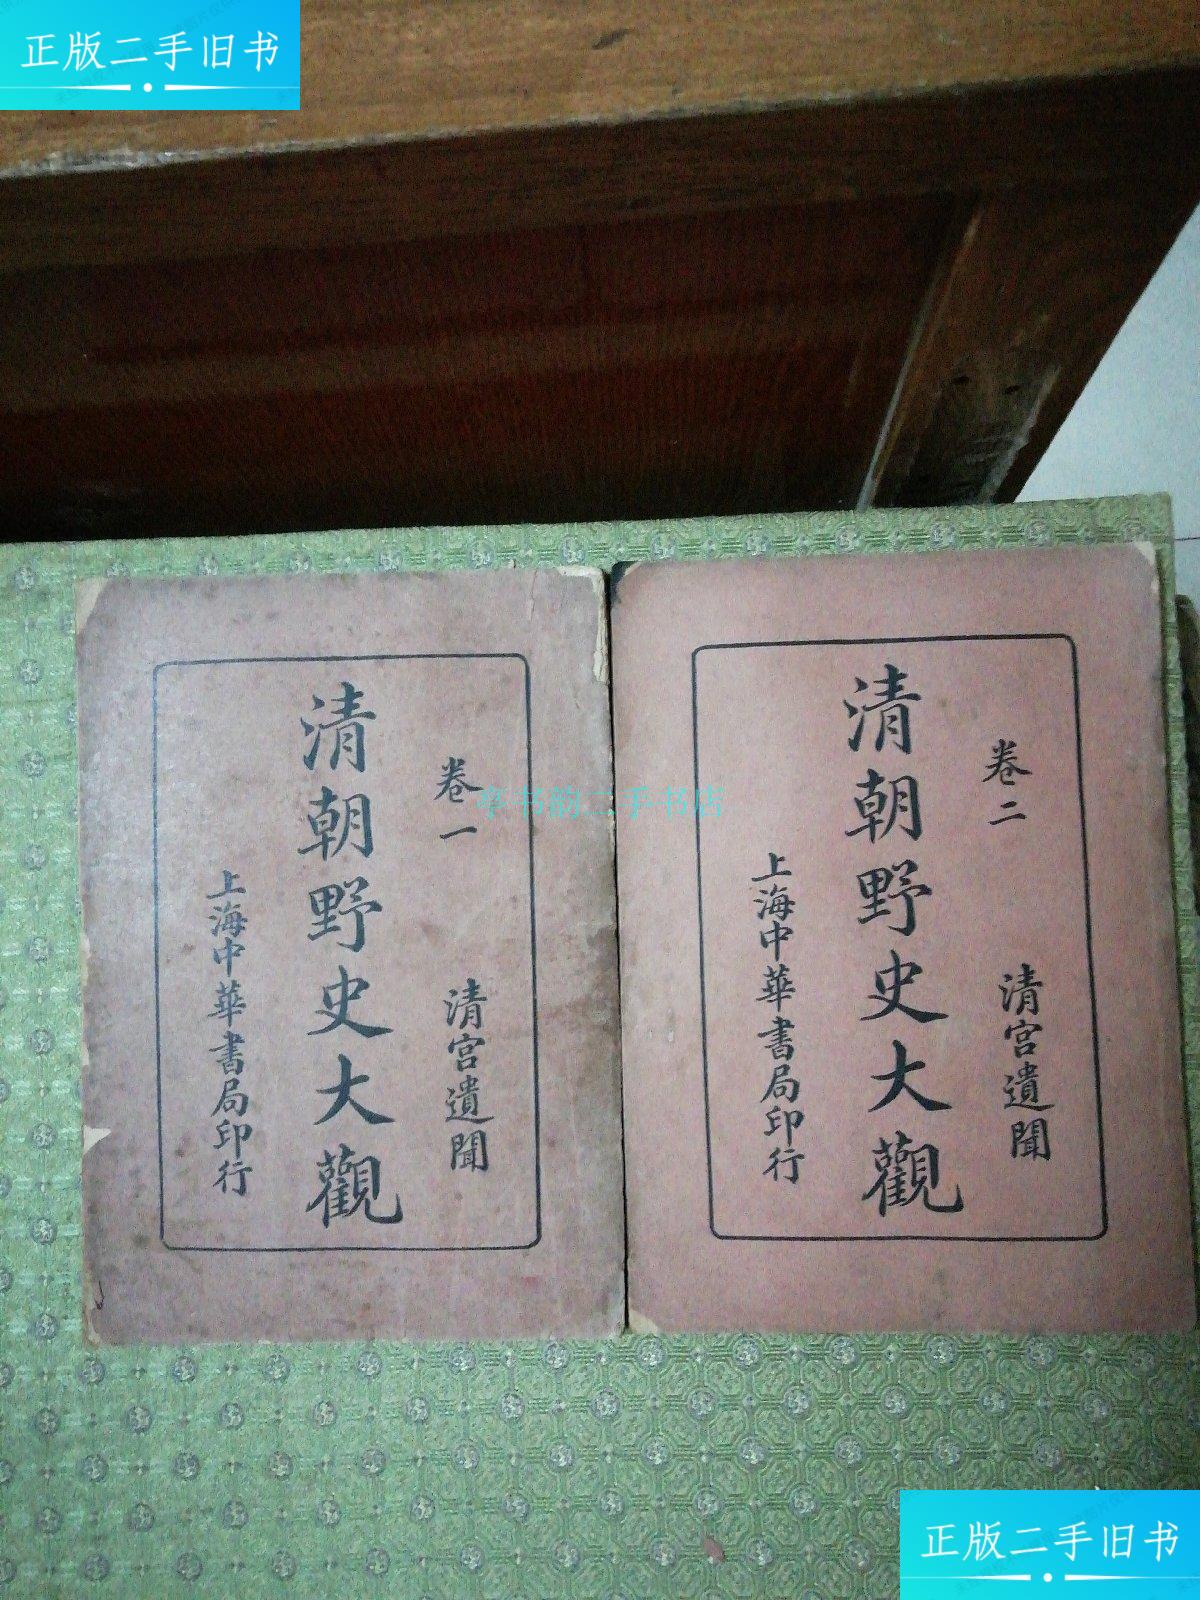 正版二手旧书
卷一 清宮遺聞
清朝野史大觀
上海中華書局印行
卷二 清宮遺聞
清朝野史大觀
上海中華書局印行
亭书韵二手书店
正版二手旧书